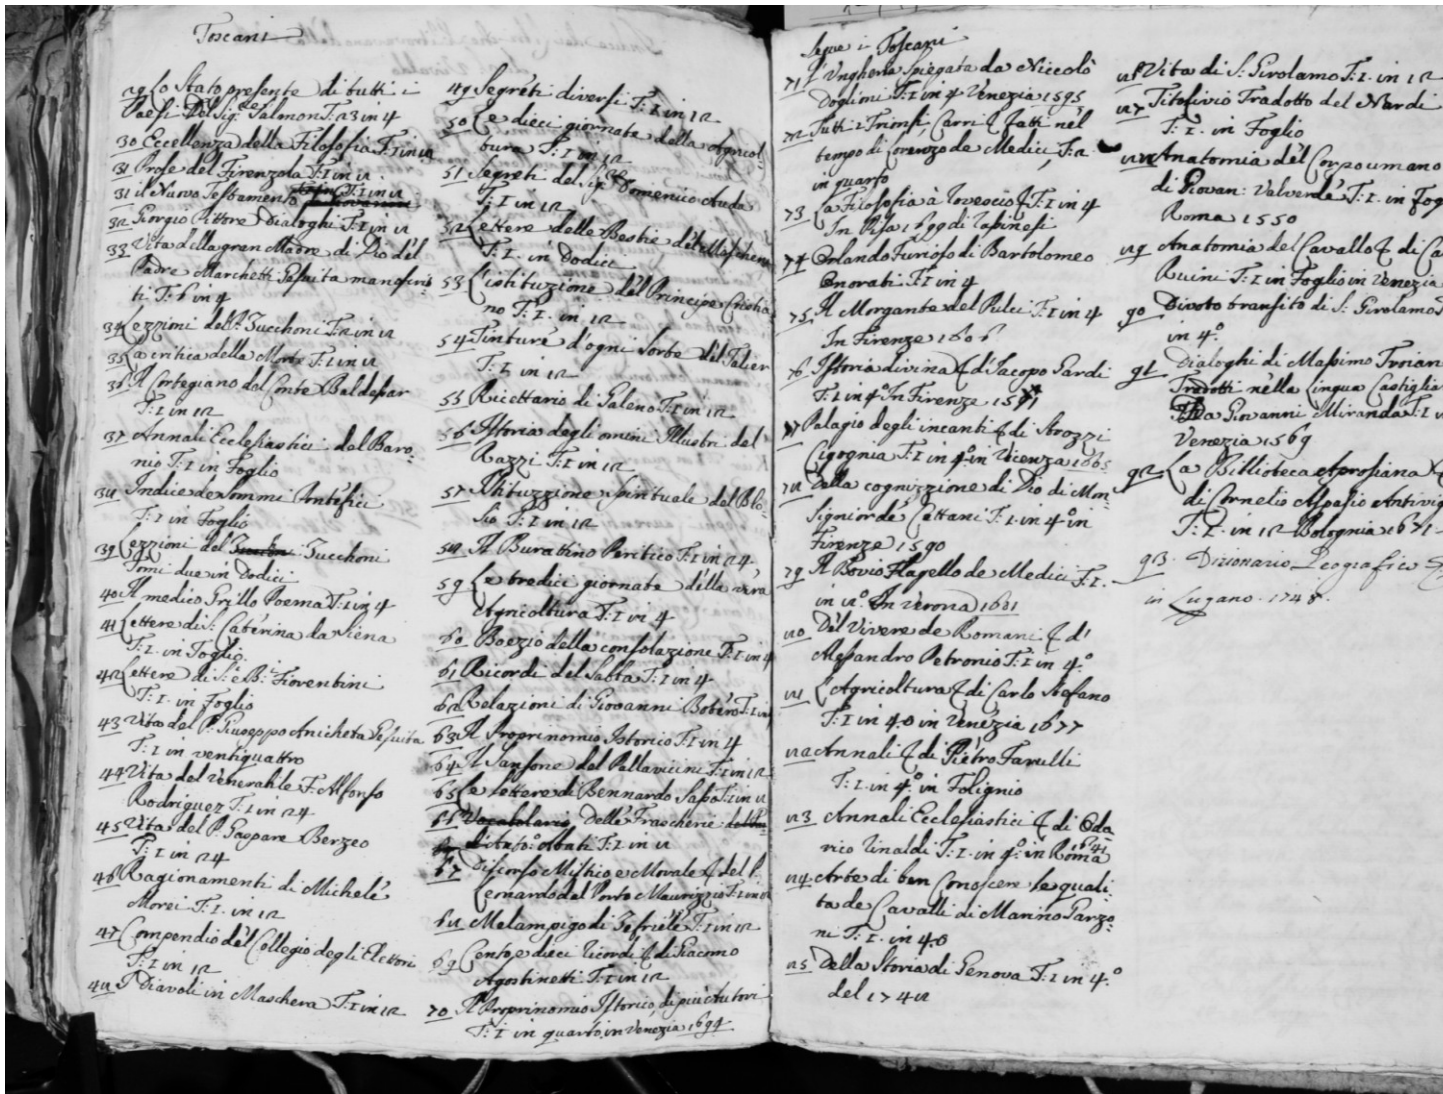 Toscani
29 Lo Stato presente di tutti i
Paesi del Sig: Salmon T: 23 in 4
30 Eccellenza della Filosofia T: I in 12
31 Prose del Firenzola T: I in 12
31 il Nuovo Testamento T: I in 12
32 Giorgio Pittore Dialoghi T: I in 12
33 Vita della gran Madre di Dio del
Padre Marchetti Gesuita manoscrit:
ti T: 6 in 4
34 Lezzioni del P: Zucchoni T: 2 in 12
35 La critica della Morte T: I in 12
36 Il Cortegiano del Conte Baldesar
T: I in 12
37 Annali Ecclesiastici del Baro:
nio T: I in Foglio
38 Indice de Sommi Pontefici
T: I in Foglio
39 Lezzioni del Zucchoni
Tomi due in Dodici
40 Il medico Grillo Poema T: I in 4
41 Lettere di S: Caterina da Siena
T: I. in Foglio
42 Lettere di S: e B: Fioventini
T: I. in Foglio
43 Vita del P: Giuseppo Anicheta Gesuita
T: I in ventiquattro
44 Vita del Venerabile F: Alfonso
Rodriguez T: I in 24
45 Vita del P: Gaspare Berzeo
T: I in 24
46 Ragionamenti di Michele
Morei T: I. in 12
47 Compendio del Collegio degli Elettori
T: I in 12
48 I Diavoli in Maschera T: I in 12
49 Segreti diversi T: I in 12
50 Le dieci giornate della Agricol:
tura T: I in 12
51 Segreti del Sig:re Domenico Auda
T: I in 12
52 Lettere delle Bestie del Moscheni
T: I. in Dodici
53 L'istituzione del Principe Cristia:
no T: I. in 12
54 Tinture d'ogni sorte del Talier
T: I in 12
55 Ricettario di Galeno T: I in 12
56 Istoria degli omini Illustri del
Razzi T: I in 12
57 Istituzzione spirituale del Blo:
sio T: I in 12
58 Il Burattino Peritico T: I in 24
59 Le tredici giornate della vera
Agricoltura T: I in 4
60 Boezio della consolazione T: I in 4
61 Ricordi del Sabba T: I in 4
62 Relazioni di Giovanni Botero T: I in
63 Il Proprinomio Istorico T: I in 4
64 Il Sansone del Pallavicini T: I in 12
65 Le lettere di Bennardo Taso T: I in 12
66 Vocabolario Delle Frascherie
di Ant:o Abati T: I in 12
67 Discorso Mistico e Morale & del P.
Leonardo del Porto Maurizzio T: I in 12
68 Melampigo di Zefriele T: I in 12
69 Cento, e dieci ricordi & di Giacomo
Agostinetti T: I in 12
70 Il Proprinomio Istorico, di più Autori
T: I in quarto, in Venezia 1694
Segue i Toscani
71 L'Ungheria Spiegata da Niccolò
Doglimi T: I in 4 Venezia 1595
72 Tutti i Trionfi, Carri & fatti nel
tempo di Lorenzo de Medici, T: 2
in quarto
73 La Filosofia à rovescio & T: I in 4
In Pisa 1699 di rapinesi
74 Orlando Furioso di Bartolomeo
Onorati T: I in 4
75 Il Morgante del Pulci T: I in 4
In Firenze 1606
76 Istoria divina & d'Iacopo Gardi
T: I in 4o In Firenze 1571
77 Palagio degli incanti & di Strozzi
Cigognia T: I in 4:o in Vicenza 1605
78 Della cognizzione di Dio di Mon:
signior de Cattani T: I. in 4:o in
Firenze 1590
79 Il Bovio Flagello de Medici T: I.
in 8:o In Verona 1681
80 Del Vivere de Romani & d'
Alesandro Petronio T: I in 4:o
81 L'Agricoltura & di Carlo Stefano
T: I in 4.o in Venezia 1677
82 Annali & di Pietro Farulli
T: I. in 4:o in Folignio
83 Annali Ecclesiastici & di Oda
rico rinaldi T: I. in 4:o in Roma 1641
84 Arte di ben Conoscere le quali:
ta de Cavalli di Marino Garzo:
ni T: I. in 4.o
85 Della Storia di Genova T: I in 4:o
del 1748
86 Vita di S: Girolamo T: I. in 12
87 Tito livio Tradotto del Nardi
T: I. in Foglio
88 Anatomia del Corpo umano
di Giovan: Valverde T: I. in Fog
Roma 1550
89 Anatomia del Cavallo & di Ca
Ruini T: I in Foglio in Venezia
90 Divoto transito di S: Girolamo
in 4:o
91 Dialoghi di Massimo Troian
Tradotti nella Lingua Castiglia
Da Giovanni Miranda T: I
Venezia 1569
92 La Biblioteca Aprosiana
di Cornelio Aspasio Antivig
T: I. in 12 Bolognia 1671
93. Dizionario Geografico
in Lugano. 1748.